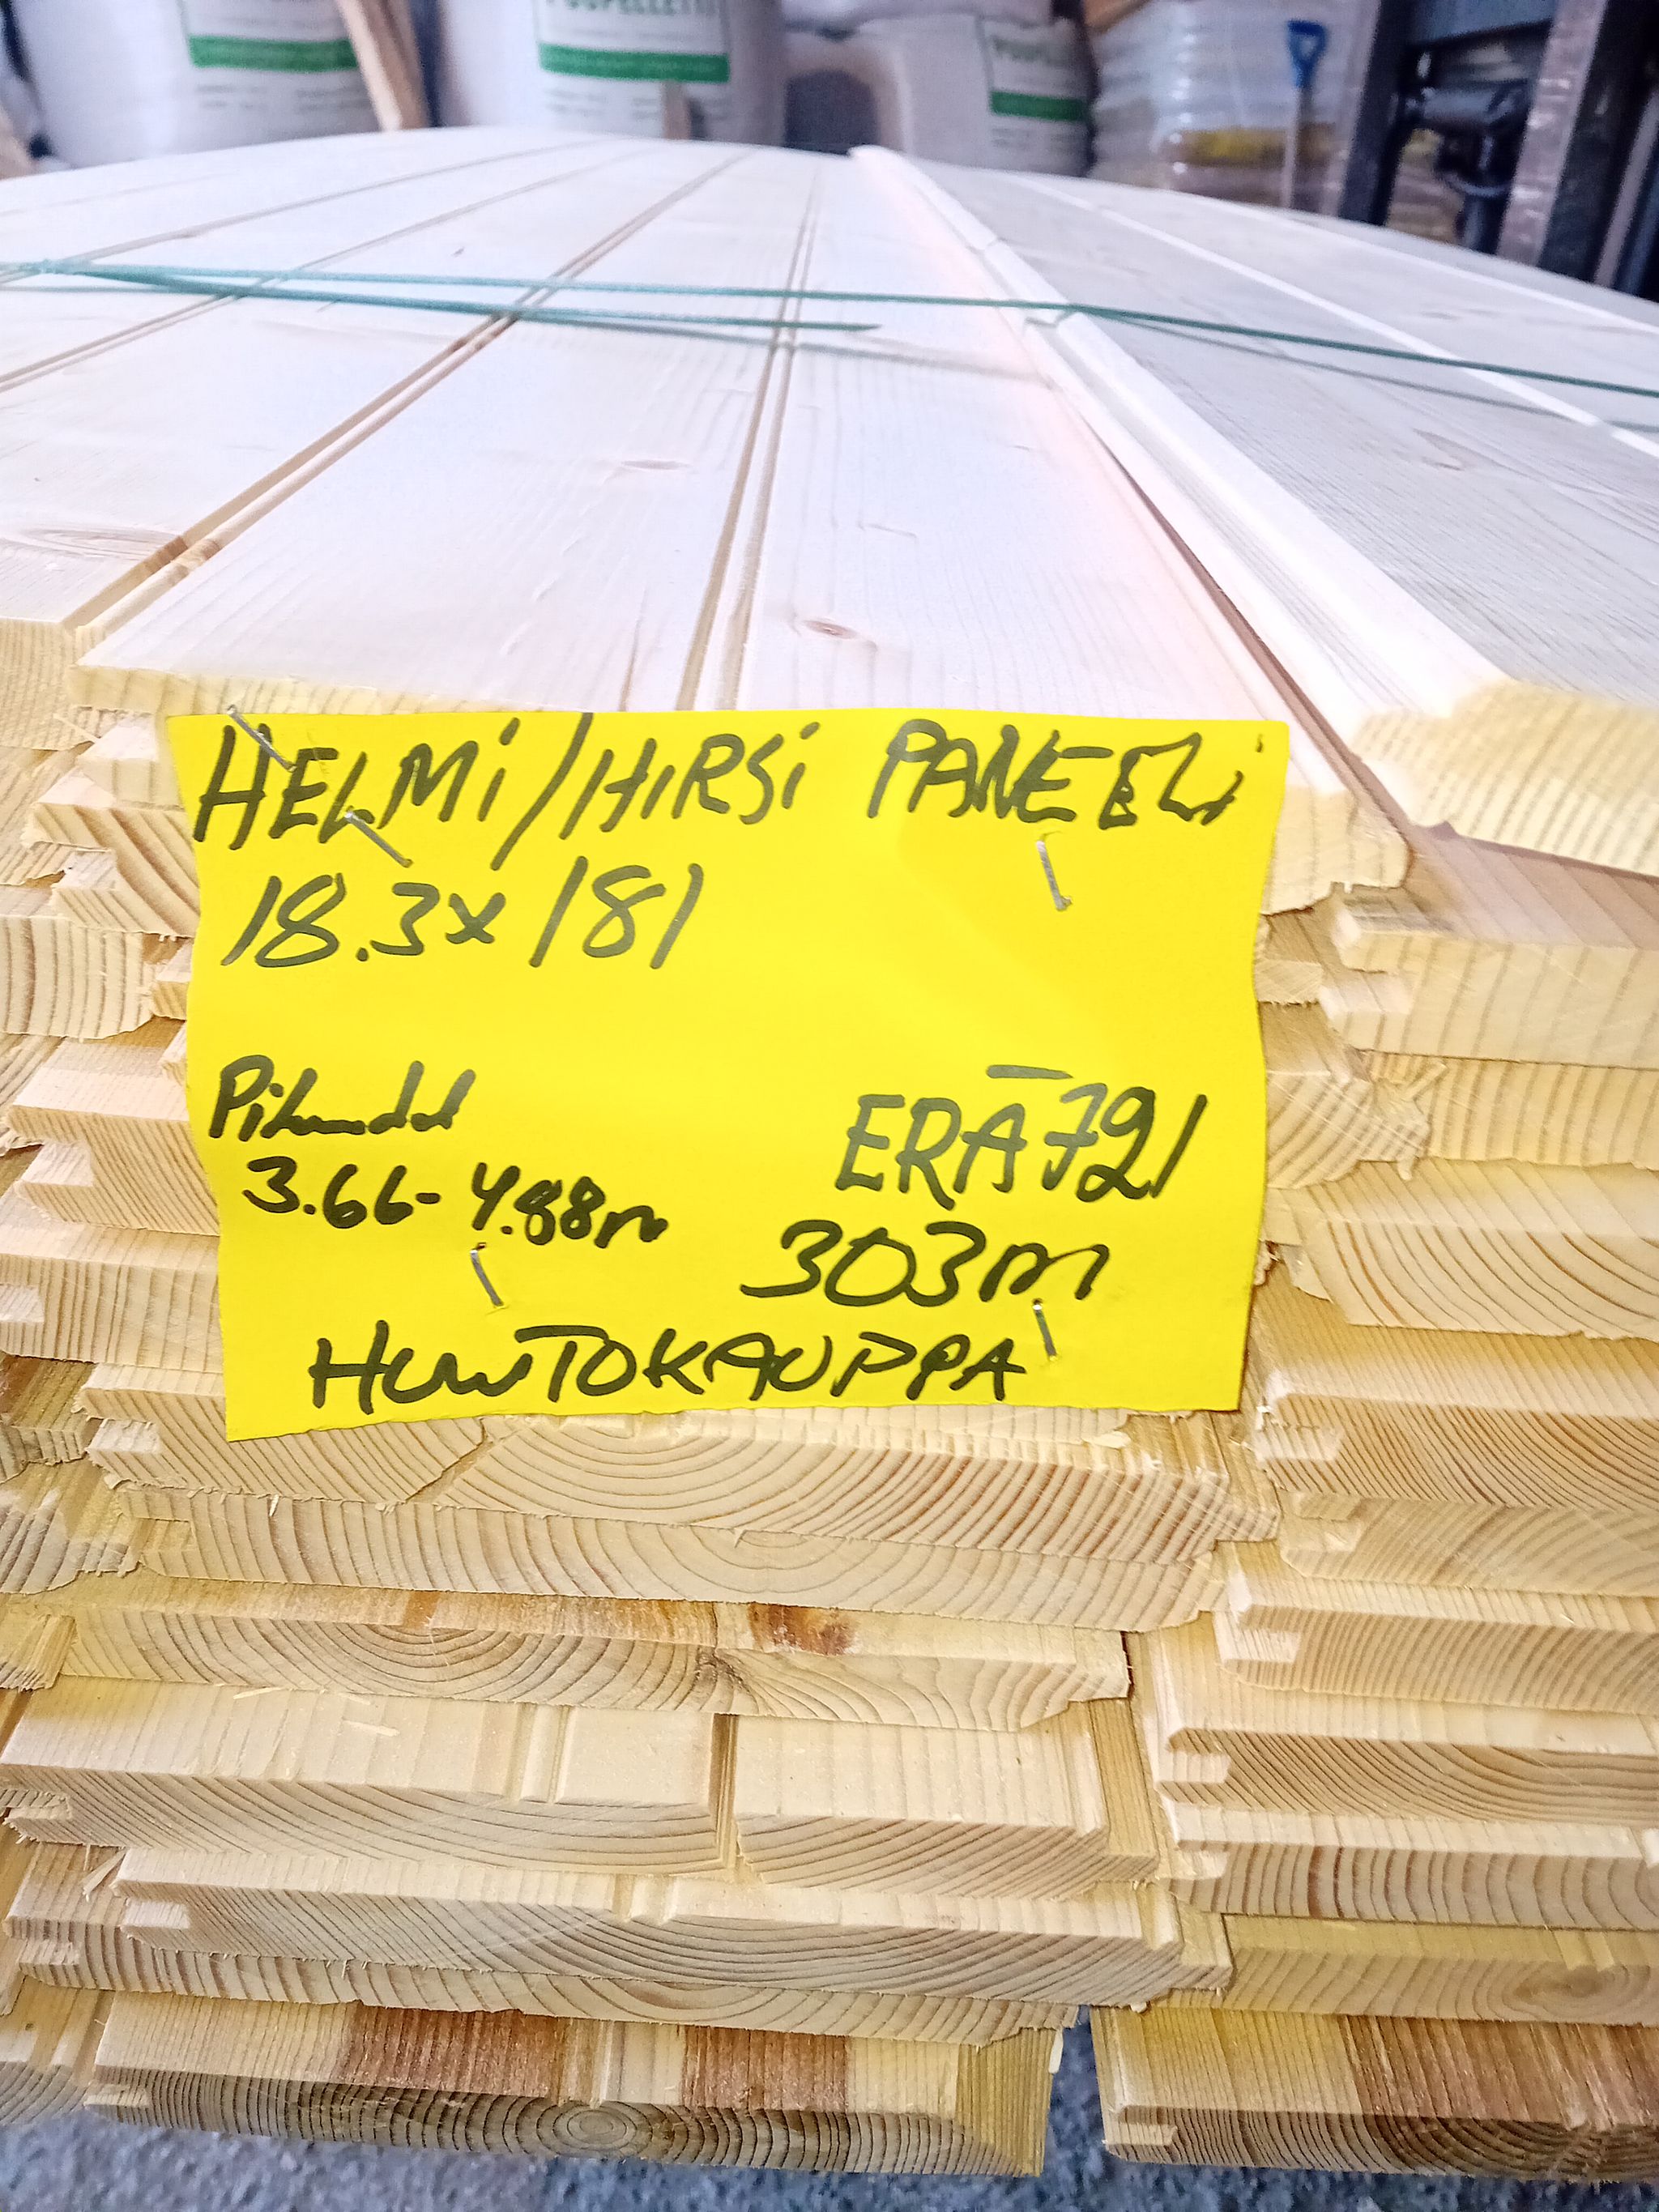 HELMi/HIRSi PANEELi
18.3x181
Pituudet
3.66-4.88m
ERÄ 721
303m
HUUTOKAUPPA